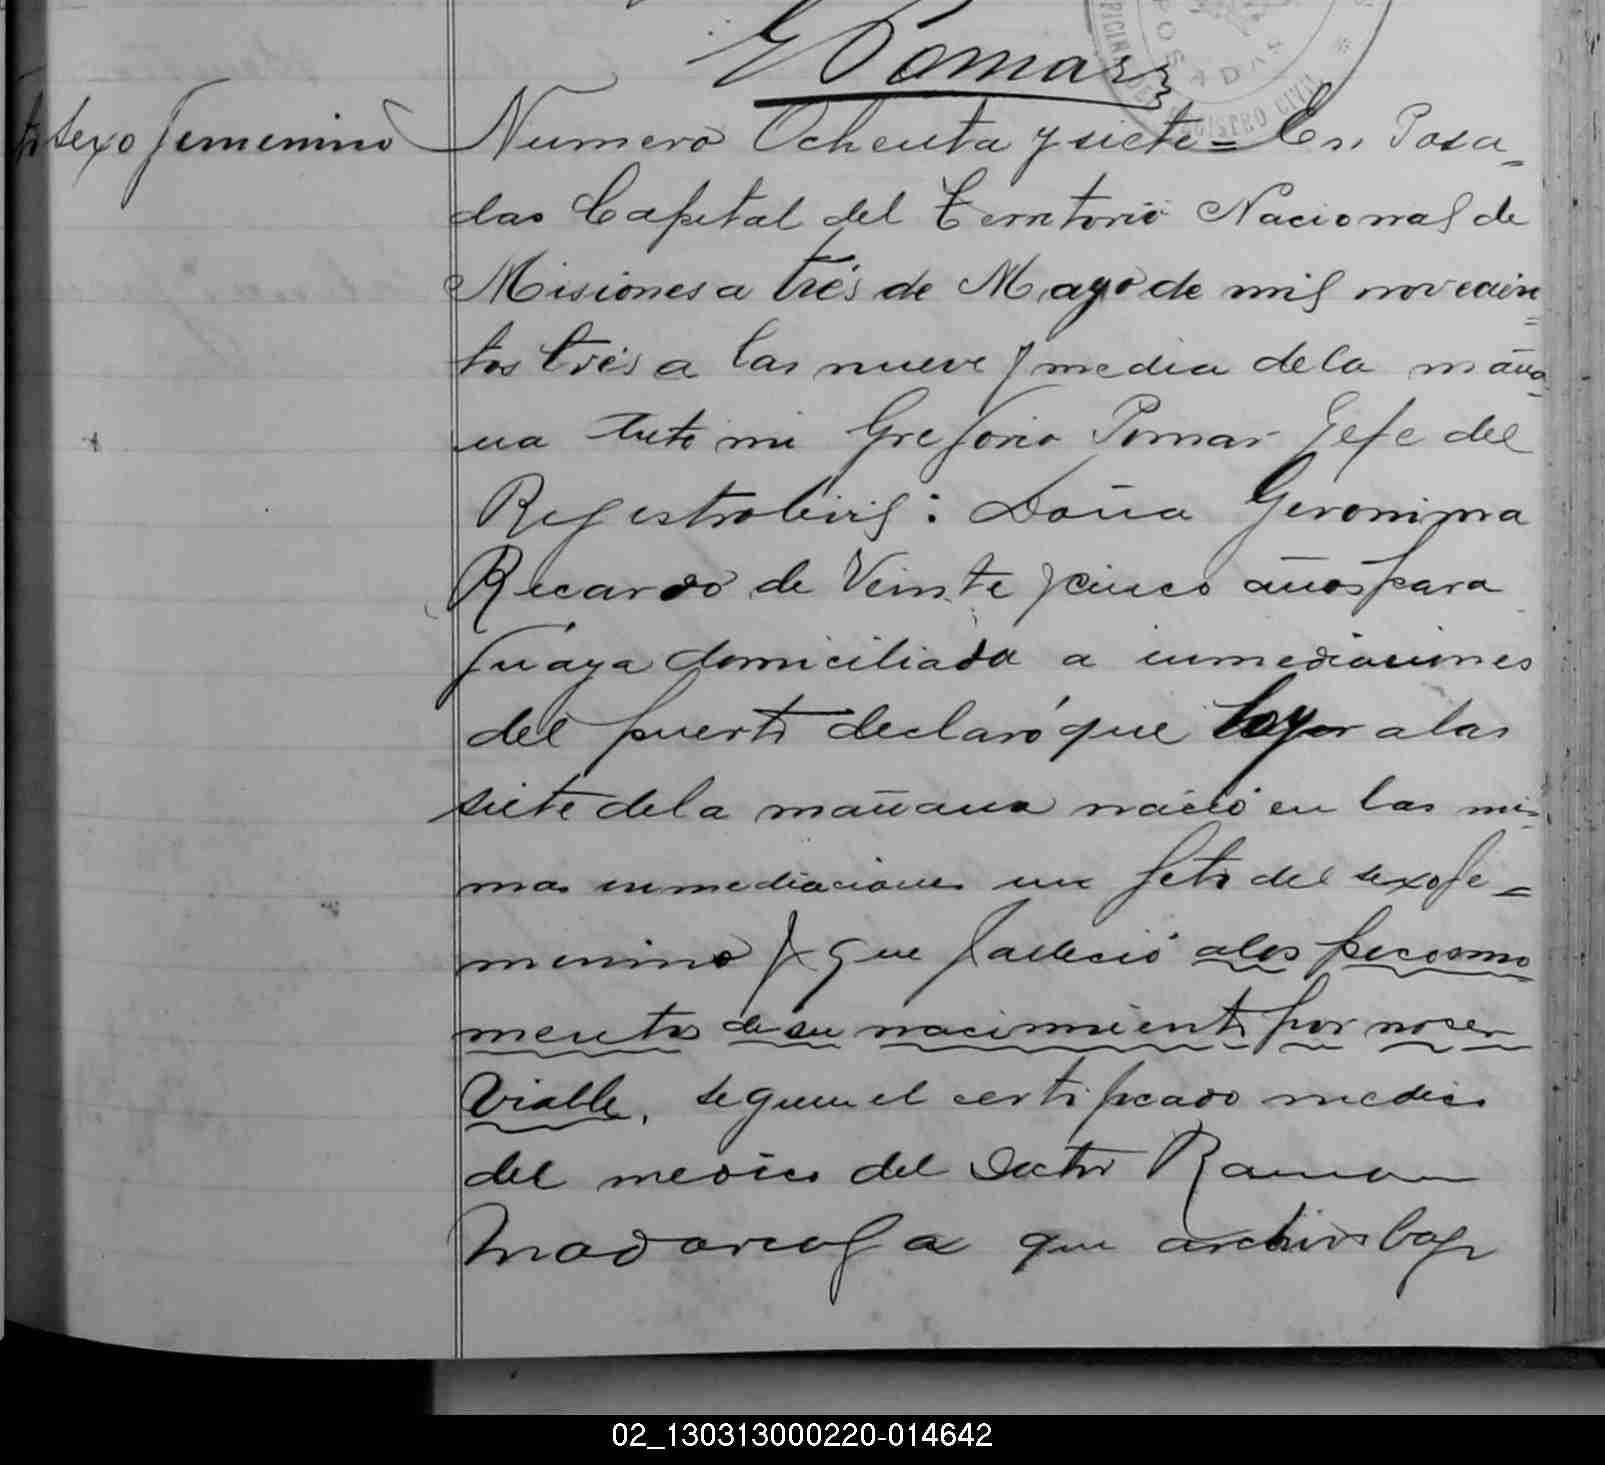 G Pomar
OFICINA DEL REGISTRO CIVIL
POSADAS
sexo femenino
Numero Ochenta y siete = En Posa-
das Capital del Territorio Nacional de
Misiones a trés de Mayo de mil novecien=
tos trés a las nueve y media de la maña-
na ante mi Gregorio Pomar Gefe del
Registro Civil: Doña Geronima
Recardo de Veinte y cinco años para
guaya domiciliada a inmediaciones
del puerto declaró que hoy a las
siete de la mañana nació en las mis-
mas inmediaciones un feto del sexo fe=
menino y que falleció a los pocos mo
mentos de su nacimiento por no ser
Viable, segun el certificado medico
del medico del Doctor Ramon
Madariaga que archivo bajo
02_130313000220-014642